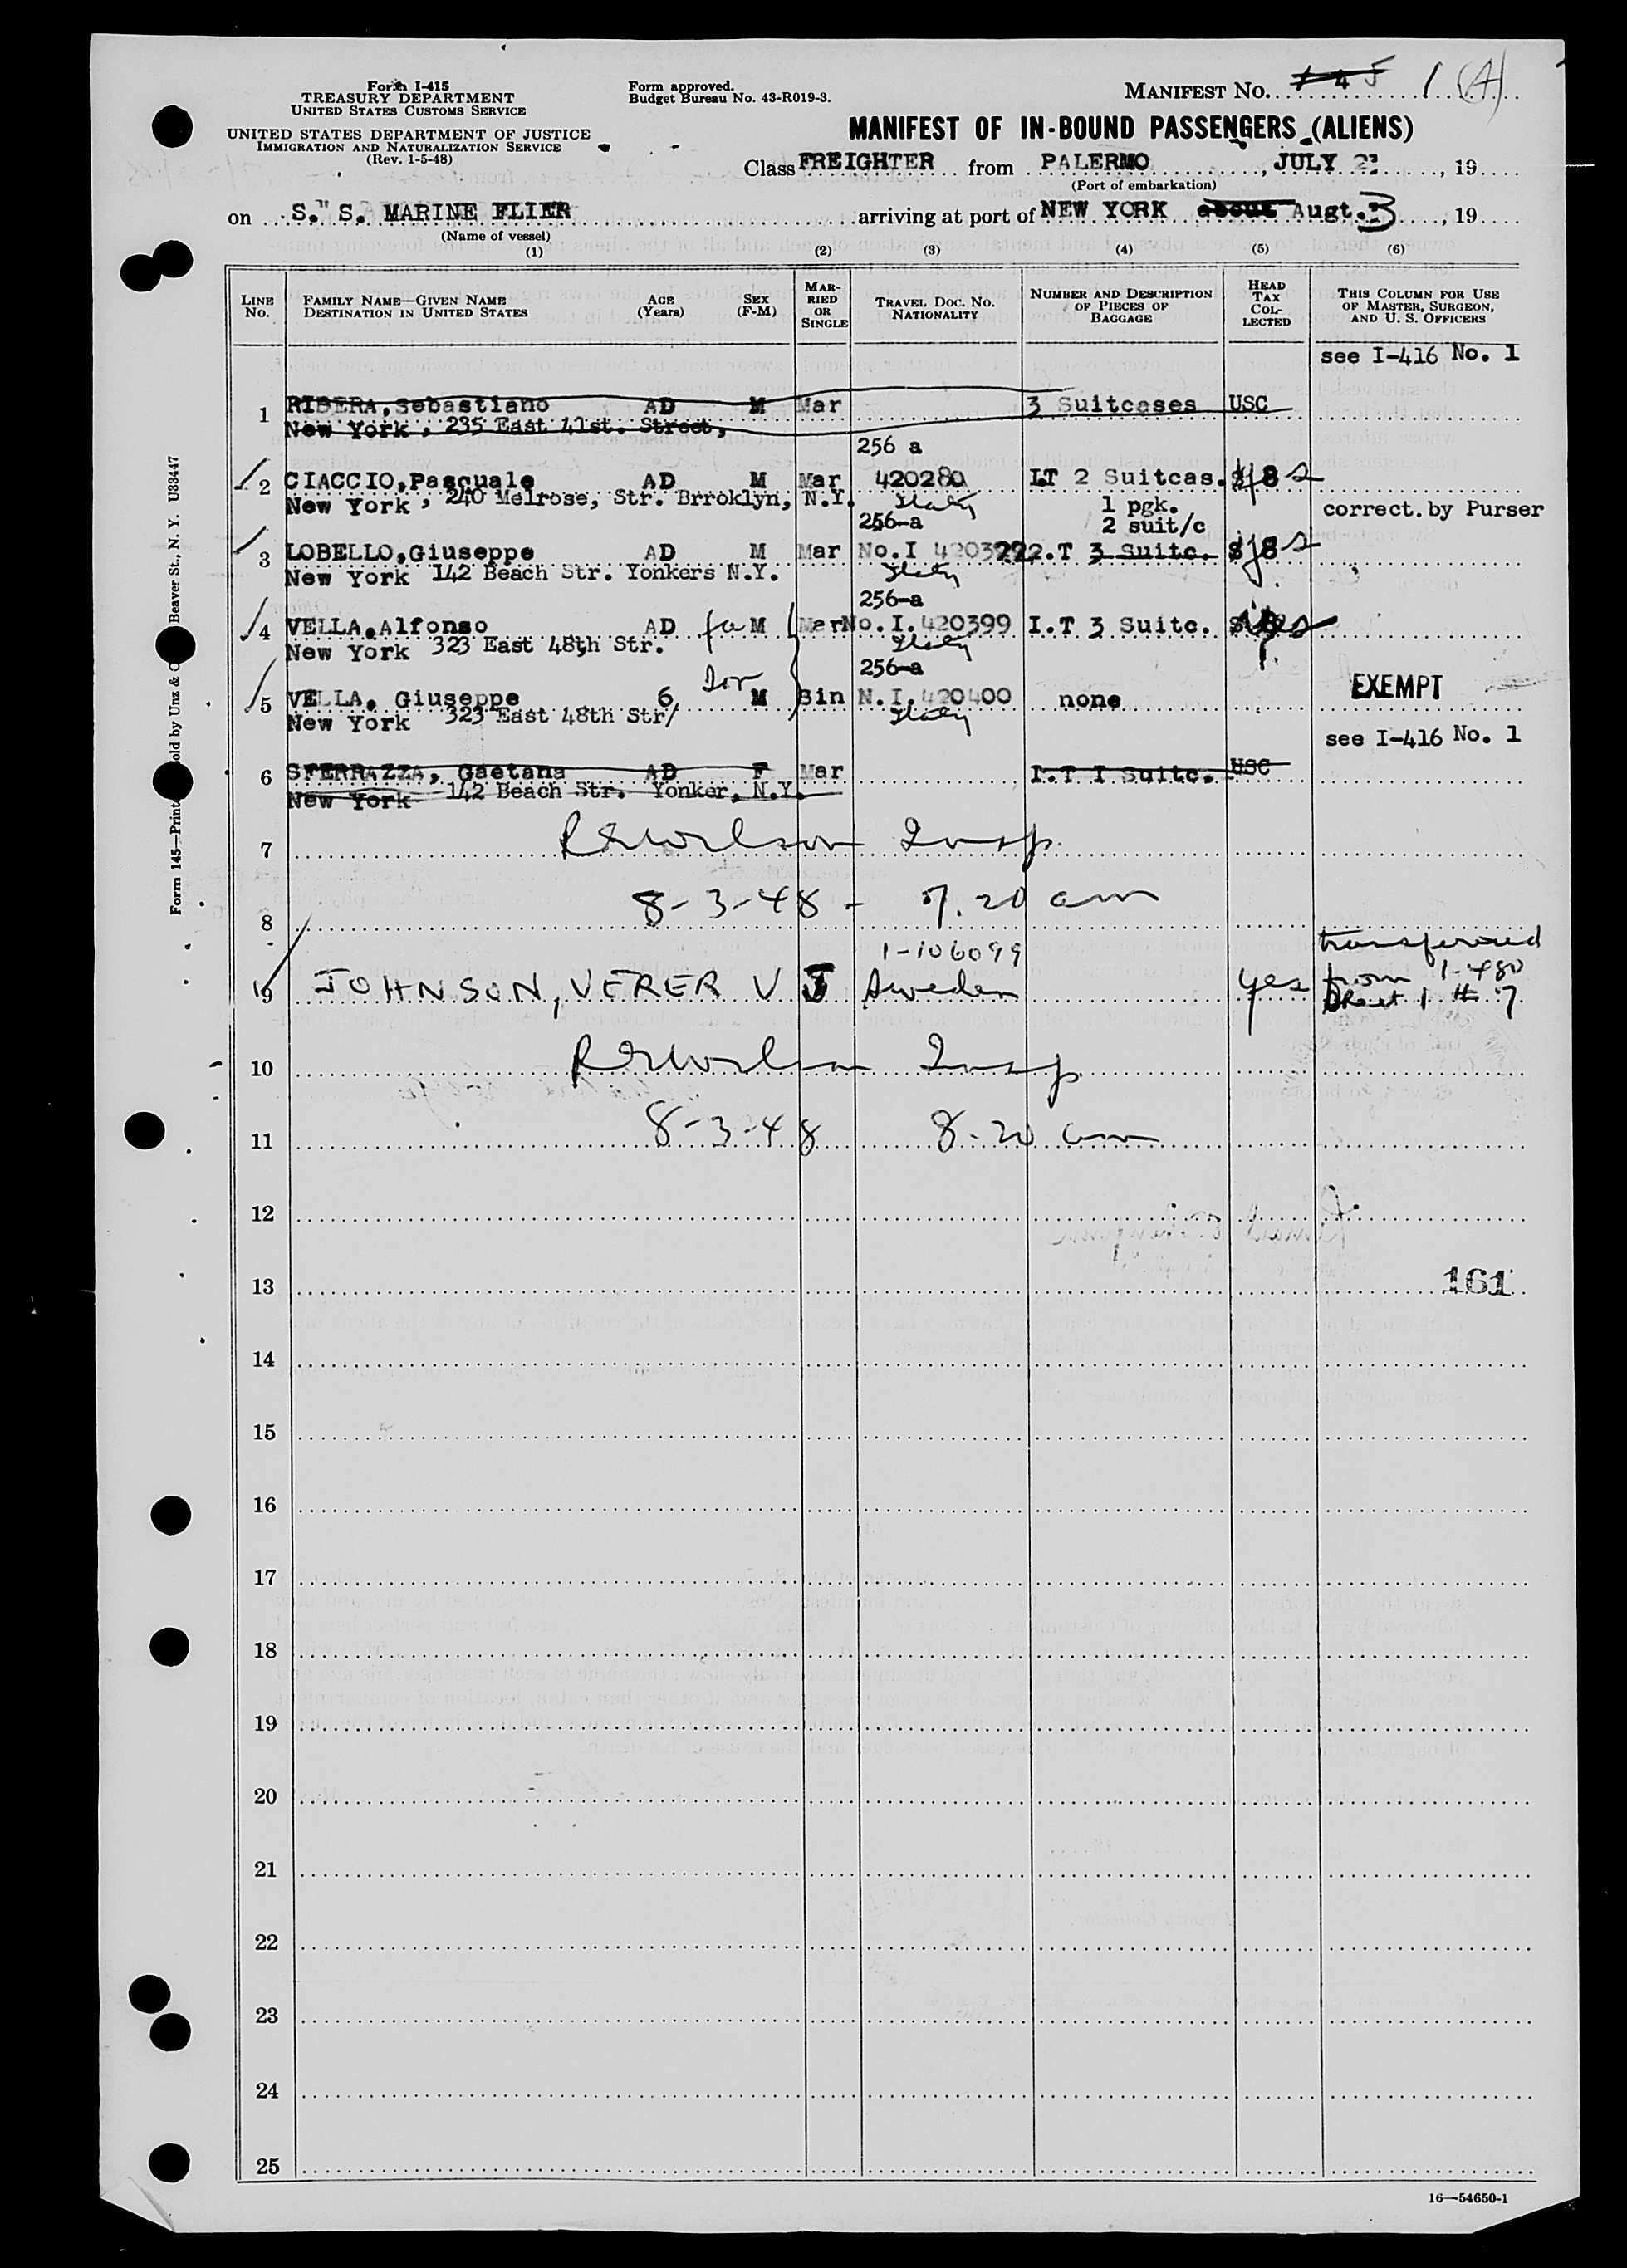 Form I-415
TREASURY DEPARTMENT
UNITED STATES CUSTOMS SERVICE
UNITED STATES DEPARTMENT OF JUSTICE
IMMIGRATION AND NATURALIZATION SERVICE
(Rev. 1-5-48)
Form approved.
Budget Bureau No. 43-R019-3.
MANIFEST No. 1 (A)
MANIFEST OF IN-BOUND PASSENGERS (ALIENS)
Class FREIGHTER from PALERMO, JULY 2, 19
(Port of embarkation)
on S. S. MARINE FLIER arriving at port of NEW YORK about Augt. 3, 19
(Name of vessel)
(1) (2) (3) (4) (5) (6)
LINE No. FAMILY NAME—GIVEN NAME DESTINATION IN UNITED STATES AGE (Years) SEX (F-M) MARRIED OR SINGLE TRAVEL DOC. NO. NATIONALITY NUMBER AND DESCRIPTION OF PIECES OF BAGGAGE HEAD TAX COLLECTED THIS COLUMN FOR USE OF MASTER, SURGEON, AND U. S. OFFICERS
see I-416 No. 1
1 RIBERA, Sebastiano AD M Mar 3 Suitcases USC
New York, 235 East 41st. Street,
256 a
2 CIACCIO, Pasquale AD M Mar 420280 IT 2 Suitcas. $ 8
New York, 240 Melrose, Str. Brroklyn, N.Y. Italy 1 pgk. correct. by Purser
256-a 2 suit/c
3 LOBELLO, Giuseppe AD M Mar No.I 420392 2.T 3 Suitc. $ 8
New York 142 Beach Str. Yonkers N.Y. Italy
256-a
4 VELLA, Alfonso AD fa M Mar No.I. 420399 I.T 3 Suitc.
New York 323 East 48th Str. Italy
256-a
5 VELLA, Giuseppe 6 Son M Sin N.I. 420400 none EXEMPT
New York 323 East 48th Str/ Italy
see I-416 No. 1
6 SFERRAZZA, Gaetana AD F Mar I.T I Suitc. USC
New York 142 Beach Str. Yonker, N.Y.
7 REWilson Insp
8 8-3-48 - 7.20 am
1-106099 transferred
9 JOHNSON, VERER V S Sweden yes from 1-480
Sheet 1 # 7
10 REWilson Insp
11 8-3-48 8-20 am
12
13 161
14
15
16
17
18
19
20
21
22
23
24
25
16—54650-1
Form 145—Printed Sold by Unz & Beaver St., N. Y. U33447